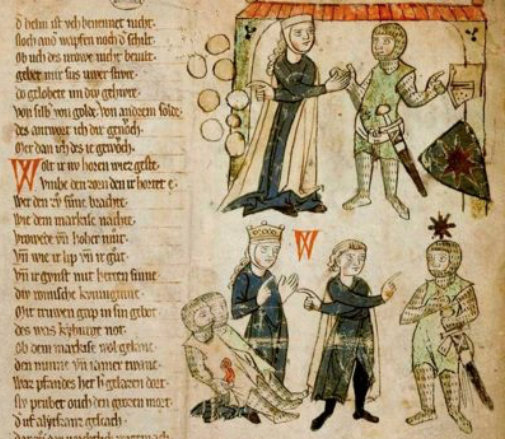 d' helm ist vch benennet nicht·
Noch and' wapfen noch d' schilt·
Ob uch des urowe nicht beuilt·
gebet mir sus stivre·
do gelobete im div gehivre·
von silb' von golde· von anderm solde·
des antwort ich dir genöch·
Mer dan ich des ie gewöch·
Wolt ir nv horen wiez geste·
Vmbe den zorn den ir hortet e·
Wer den zv sune brachte·
Wie dem markise nachte·
vrowede vn̄ hoher mut·
Vn̄ wie ir lip vn̄ ir gut·
Vn̄ ir gvnst mit sinne
div romische kuniginne·
Mit truwen gap in sin gebot·
des was kyburge not·
Ob dem markise wol gelanc·
den minne vn̄ iamer twanc·
Waz pfandes her h' gelazen dort·
Siv pruuet ouch den grozen mort·
d' uf geschach·
W